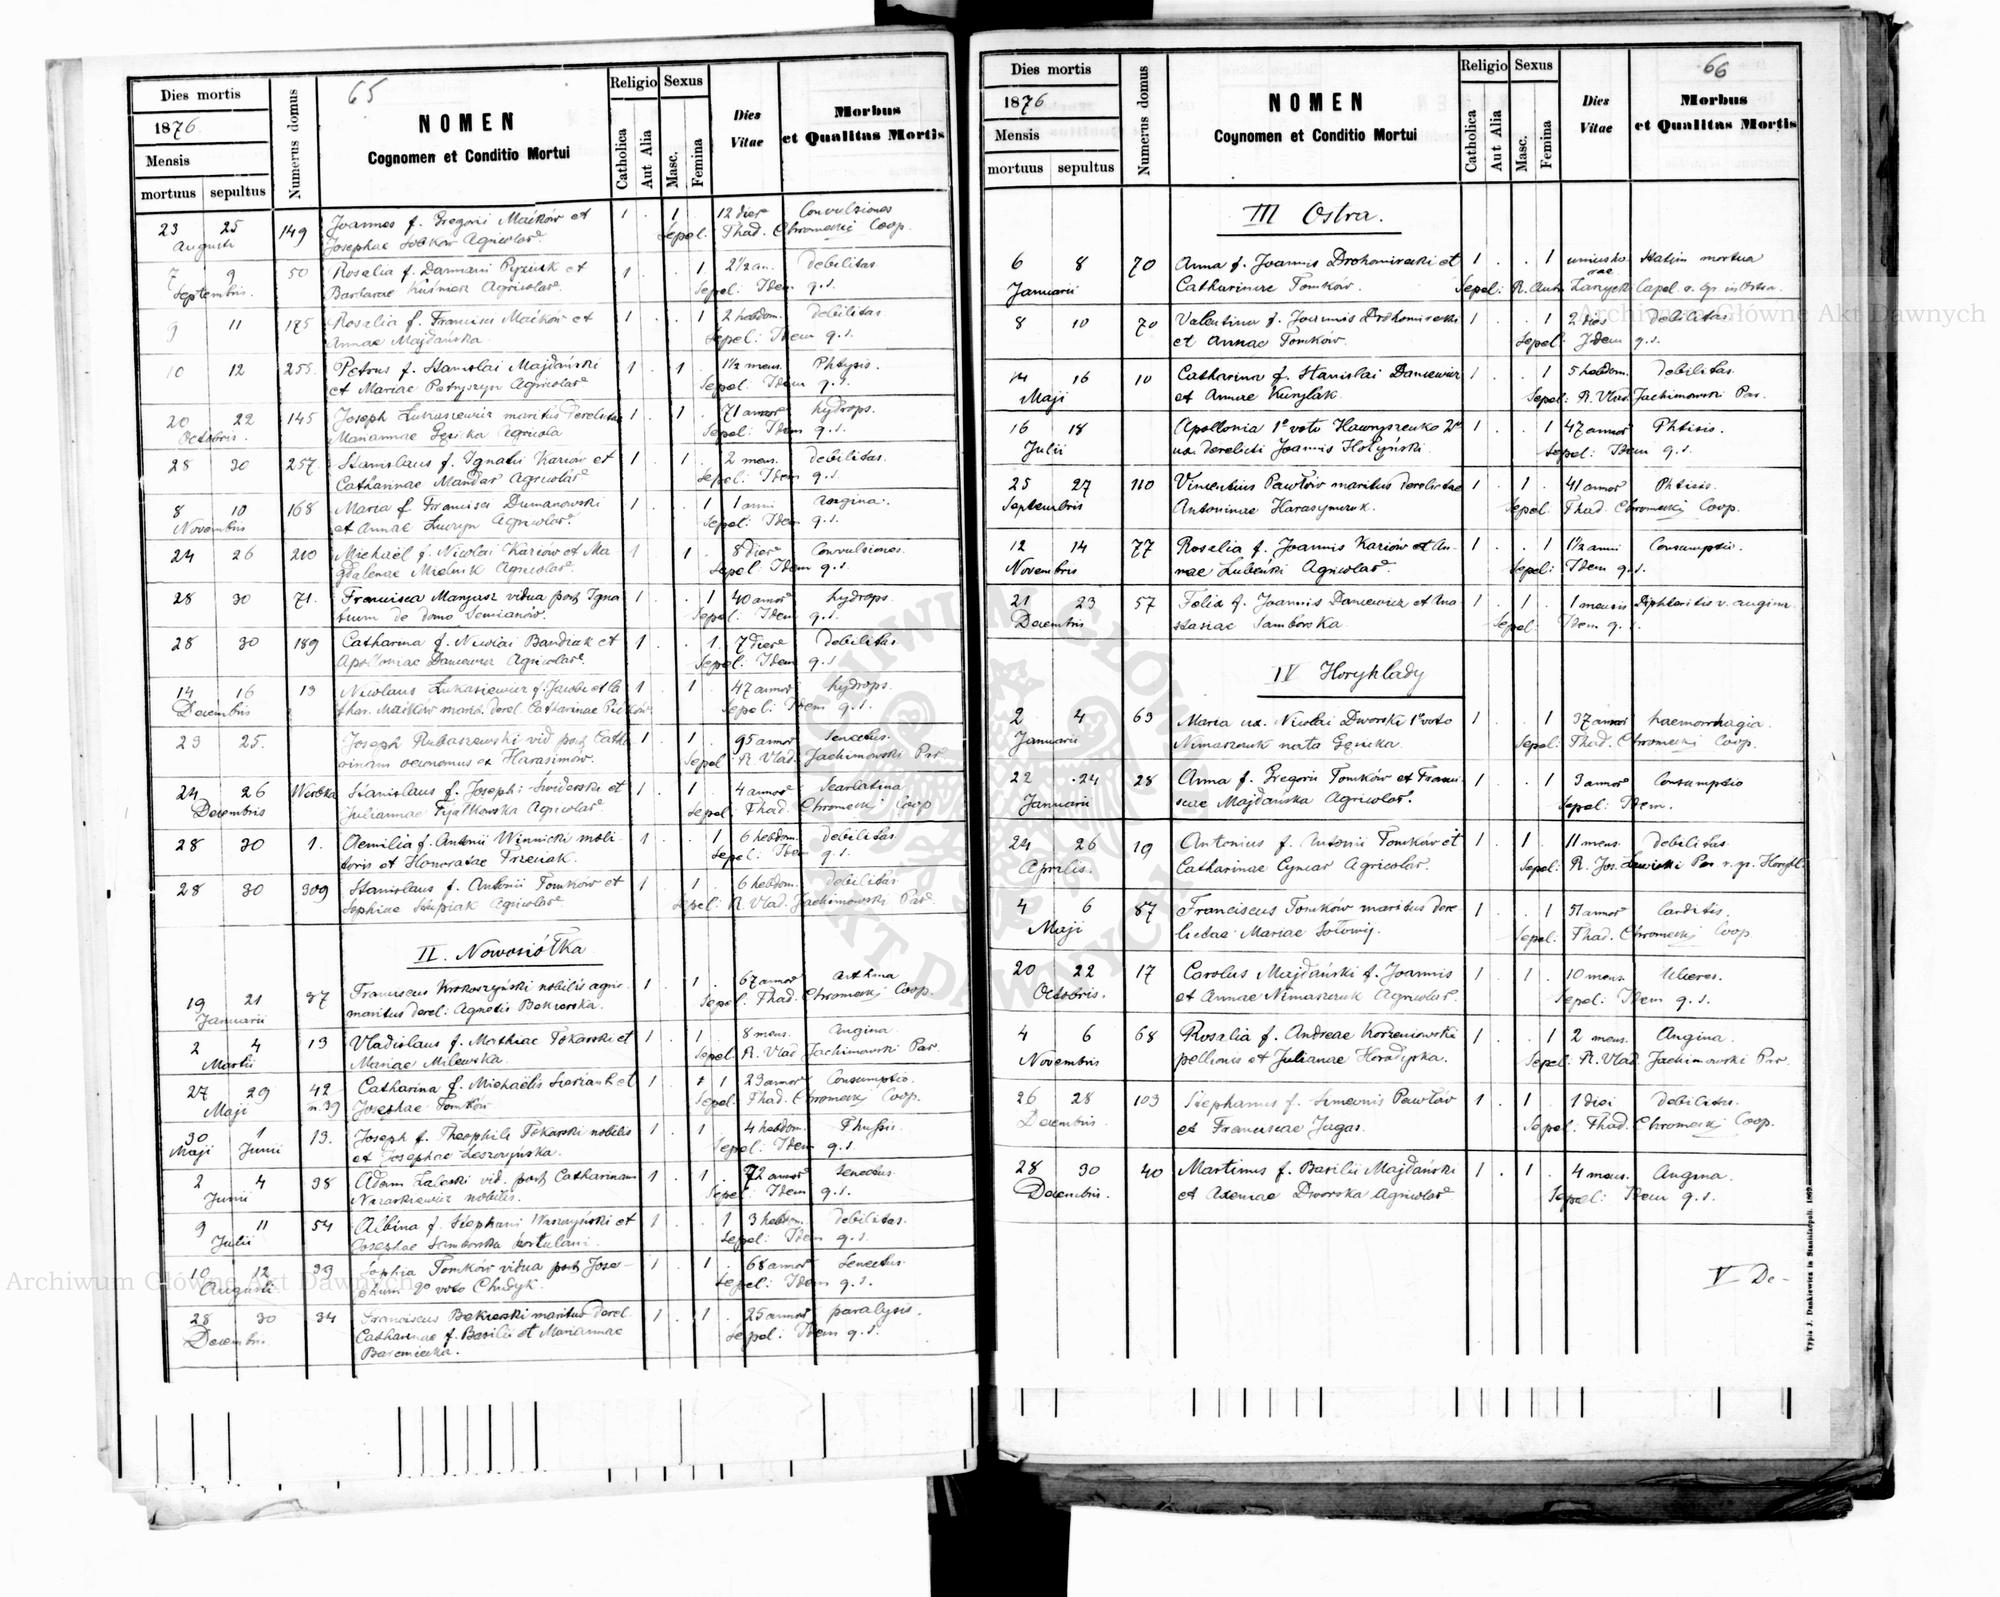 65
Dies mortis
1876
Mensis
mortuus sepultus
Numerus domus
NOMEN
Cognomen et Conditio Mortui
Religio
Catholica
Aut Alia
Sexus
Masc.
Femina
Dies Vitae
Morbus
et Qualitas Mortis
23 25 149 Joannes f. Gregorii Maćków et 1 . 1 12 dier. Convulsiones
Augusti Josephae Agricolar. Sepel: Thad. Chromecki Coop.
7 9 50 Rosalia f. Damiani et 1 . . 1 2 1/2 an. debilitas
Septembris. Barbarae Kuśnierz Agricolar. Sepel: Idem q.s.
9 11 185 Rosalia f. Francisci Maćków et 1 . . 1 2 hebdom. debilitas.
Annae Majdańska. Sepel: Idem q.s.
10 12 255. Petrus f. Stanislai Majdański 1 . 1 . 1 1/2 mens. Phtysis.
et Mariae Petryszyn Agricolar. Sepel: Idem q.s.
20 22 145 Joseph Łukasiewicz maritus derelictae 1 . 1 . 71 annor. hydrops.
Octobris. Mariannae Gęsika Agricola Sepel: Idem q.s.
28 30 257. Stanislaus f. Ignatii Kariów et 1 . 1 . 2 mens. debilitas.
Catharinae Mandar Agricolar. Sepel: Idem q.s.
8 10 168 Maria f. Francisci Dumanowski 1 . . 1 1 anni Angina.
Novembris et Annae Agricolar. Sepel: Idem q.s.
24 26 210 Michaël f. Nicolai Kariów et Ma 1 . 1 . 8 dier. Convulsiones.
gdalenae Mielnik Agricolar. Sepel: Idem q.s.
28 30 71. Francisca Manjasz vidua post Igna . . 1 40 annor. hydrops.
tium de domo Semianów. Sepel: Idem q.s.
28 30 189 Catharina f. Nicolai Bandrak et 1 . . 1. 7 dier. Debilitas
Apolloniae Daniewicz Agricolar. Sepel: Idem q.s
14 16 13 Nicolaus Łukasiewicz f. Jacobi et Ca 1 . 1 . 47 annor. hydrops.
Decembris thar. Maćków marit. derel. Catharinae Sepel: Idem q.s.
23 25. Joseph Rubaszewski vid. post Catha 1 . 1 . 95 annor. Senectus.
rinam oeconomus et Harasimow. Sepel: R. Vlad. Jachimowski Par
24 26 Werbka Stanislaus f. Josephi Świderski et 1 . 1 . 4 annor. Scarlatina
Decembris Juliannae Fijałkowska Agricolar. Sepel: Thad. Chromecki Coop
28 30 1. Aemilia f. Antonii Winnicki moli- 1 . . 1 6 hebdom. debilitas
toris et Honoratae Trzeciak. Sepel: Idem q.s.
28 30 309 Stanislaus f. Antonii Tomków et 1 . 1 . 6 hebdom. debilitas
Sophiae Agricolar. Sepel: R. Vlad. Jachimowski Par.
II. Nowosiółka
19 21 37 Franciscus Krokoszyński nobilis agric. 1 . 1 . 67 annor. Asthma
Januarii maritus derel: Agnetis Bekierska. Sepel: Thad. Chromecki Coop.
2 4 13 Vladislaus f. Mathiae Tokarski et 1 . 1 . 8 mens. Angina.
Martii Mariae Milewska. Sepel: R. Vlad Jachimowski Par.
27 29 42 Catharina f. Michaëlis et 1 . 1 1 23 annor. Consumptio.
Maji n.39 Josephae Tomków Sepel: Thad. Chromecki Coop.
30 1 13. Joseph f. Theophili Tokarski nobilis 1 . 1 . 4 hebdom. Thussis.
Maji Junii et Josephae Leszczyńska. Sepel: Idem q.s.
2 4 38 Adam Zaleski vid. post Catharinam 1 . 1 . 72 annor. Senectus.
Junii Nazarkiewicz nobilis. Sepel: Idem q.s.
9 11 54 Albina f. Stephani Waszyński et 1 . . 1 3 hebdom. debilitas.
Julii Josephae Samborska hortulani. Sepel: Idem q.s.
10 12 39 Sophia Tomków vidua post Jose- 1 . 1 . 68 annor. Senectus.
Augusti phum 2o voto Chudyk. Sepel: Idem q.s.
28 30 34 Franciscus Bekierski maritus derel. 1 . 1 . 25 annor. paralysis.
Decembris Catharinae f. Basilii et Mariannae Sepel: Idem q.s.
Baremiecka.
66
Dies mortis
1876
Mensis
mortuus sepultus
Numerus domus
NOMEN
Coynomen et Conditio Mortui
Religio
Catholica
Aut Alia
Sexus
Masc.
Femina
Dies Vitae
Morbus
et Qualitas Mortis
III Ostra.
6 8 70 Anna f. Joannis Drohomirecki et 1 . . 1 unius ho Statim mortua
Januarii Catharinae Tomków. rae Sepel: R. Ant. Capel. r. gr. in Ostra.
8 10 70 Valentina f. Joannis Drohomirecki 1 . . 1 2 dies Debilitas
et Annae Tomków. Sepel: Idem q.s.
14 16 10 Catharina f. Stanislai Daniewicz 1 . . 1 5 hebdom. Debilitas.
Maji et Annae Kunylak. Sepel: R. Vlad. Jachimowski Par.
16 18 Apollonia 1o voto Hawryszeuko 2o 1 . . 1 47 annor. Phtisis.
Julii ux. derelicti Joannis Hołyński. Sepel: Idem q.s.
25 27 110 Vincentius Pawłów maritus derelictae 1 . 1 . 41 annor. Phtisis.
Septembris Antoninae Harasymczuk. Sepel: Thad. Chromecki Coop.
12 14 77 Rosalia f. Joannis Kariów et An- 1 . . 1 1 1/2 anni Consumptio.
Novembris nae Łubeński Agricolar. Sepel: Idem q.s.
21 23 57 Felix f. Joannis Daniewicz et Ana 1 . 1 . 1 mensis Diphteritis v. angina
Decembris stasiae Samborska. Sepel: Idem q.s.
IV Horyhlady
2 4 63 Maria ux. Nicolai Dworski 1o voto 1 . 1 37 annor haemorrhagia.
Januarii Nimaszczuk nata Gęsicka. Sepel: Thad. Chromecki Coop.
22 24 28 Anna f. Gregorii Tomków et Franci 1 . . 1 3 annor. Consumptio
Januarii scae Majdańska Agricolar. Sepel: Idem.
24 26 19 Antonius f. Antonii Tomków et 1 . 1 . 11 mens. debilitas.
Aprilis. Catharinae Cyncar Agricolar. Sepel: R. Jos. Lewicki Par. r. gr. Horyhl.
4 6 87 Franciscus Tomków maritus dere 1 . . 1 51 annor. Carditis.
Maji lictae Mariae Sołowij. Sepel: Thad. Chromecki Coop
20 22 17 Carolus Majdański f. Joannis 1 . 1 . 10 mens. Ulceres.
Octobris. et Annae Nimaszczuk Agricolar. Sepel: Idem q.s.
4 6 68 Rosalia f. Andreae Korzeniowski 1 . . 1 2 mens. Angina.
Novembris pellionis et Julianae Horodyska. Sepel: R. Vlad. Jachimowski Par.
26 28 103 Stephanus f. Simeonis Pawłów 1 . 1 . 1 diei Debilitas.
Decembris et Franciscae Jagas. Sepel: Thad. Chromecki Coop.
28 30 40 Martinus f. Basilii Majdański 1 . 1 . 4 mens. Angina.
Decembris. et Axeniae Dworska Agricolar. Sepel: Idem q.s.
V De-
Typis J. Dankiewicz in Stanislaopoli. 1862
Archiwum Główne Akt Dawnych
Archiwum Główne Akt Dawnych
ARCHIWUM GŁÓWNE AKT DAWNYCH